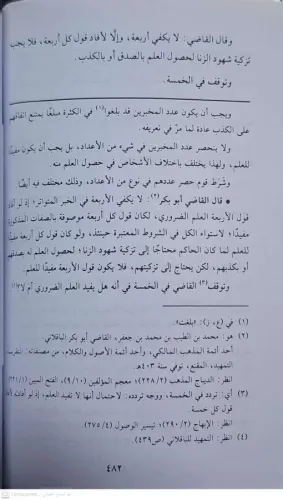 وقال القاضي: لا يكفي أربعة، وإلّا لأفاد قول كل أربعة، فلا يجب
تزكية شهود الزنا لحصول العلم بالصدق أو بالكذب.
وتوقف في الخمسة.
ويجب أن يكون عدد المخبرين قد بلغوا(١) في الكثرة مبلغًا يمتنع اتفاقهم
على الكذب عادة لما مرّ في تعريفه.
ولا ينحصر عدد المخبرين في شيء من الأعداد، بل يجب أن يكون مفيدًا
للعلم، ولهذا يختلف باختلاف الأشخاص في حصول العلم منه.
وشرَط قوم حصر عددهم في نوع من الأعداد، وذلك مختلف فيه أيضًا
• قال القاضي أبو بكر(٢): لا يكفي الأربعة في الخبر المتواتر؛ إذ لو كان
قول الأربعة العلم الضروري، لكان قول كل أربعة موصوفة بالصفات المذكورة
مفيدًا؛ لاستواء الكل في الشروط المعتبرة حينئذ، ولو كان قول كل أربعة مفيدًا
للعلم لما كان الحاكم محتاجًا إلى تزكية شهود الزنا؛ لحصول العلم له بصدقهم
أو بكذبهم، لكن يحتاج إلى تزكيتهم، فلا يكون قول الأربعة مفيدًا للعلم.
وتوقف(٣) القاضي في الخمسة في أنه هل يفيد العلم الضروري أم لا؟(٤)
(١) في (ع، ز): «بلغت».
(٢) هو: محمد بن الطيب بن محمد بن جعفر، القاضي أبو بكر الباقلاني
أحد أئمة المذهب المالكي، وأحد أئمة الأصول والكلام، من مصنفاته:
التمهيد، المقنع، توفي سنة ٤٠٣هـ.
انظر: الديباج المذهب (٢٢٨/٢)؛ معجم المؤلفين (١٠/٩)، الفتح المبين (٢٢١/١)
(٣) أي: تردد في الخمسة، ووجه تردده: لاحتمال أنها لا تفيد العلم، إذ لو أفادت
قول كل خمسة.
انظر: الإبهاج (٢٩٠/٢)؛ تيسير الوصول (٢٧٥/٤).
(٤) انظر: التمهيد للباقلاني (ص٤٣٩).
٤٨٢